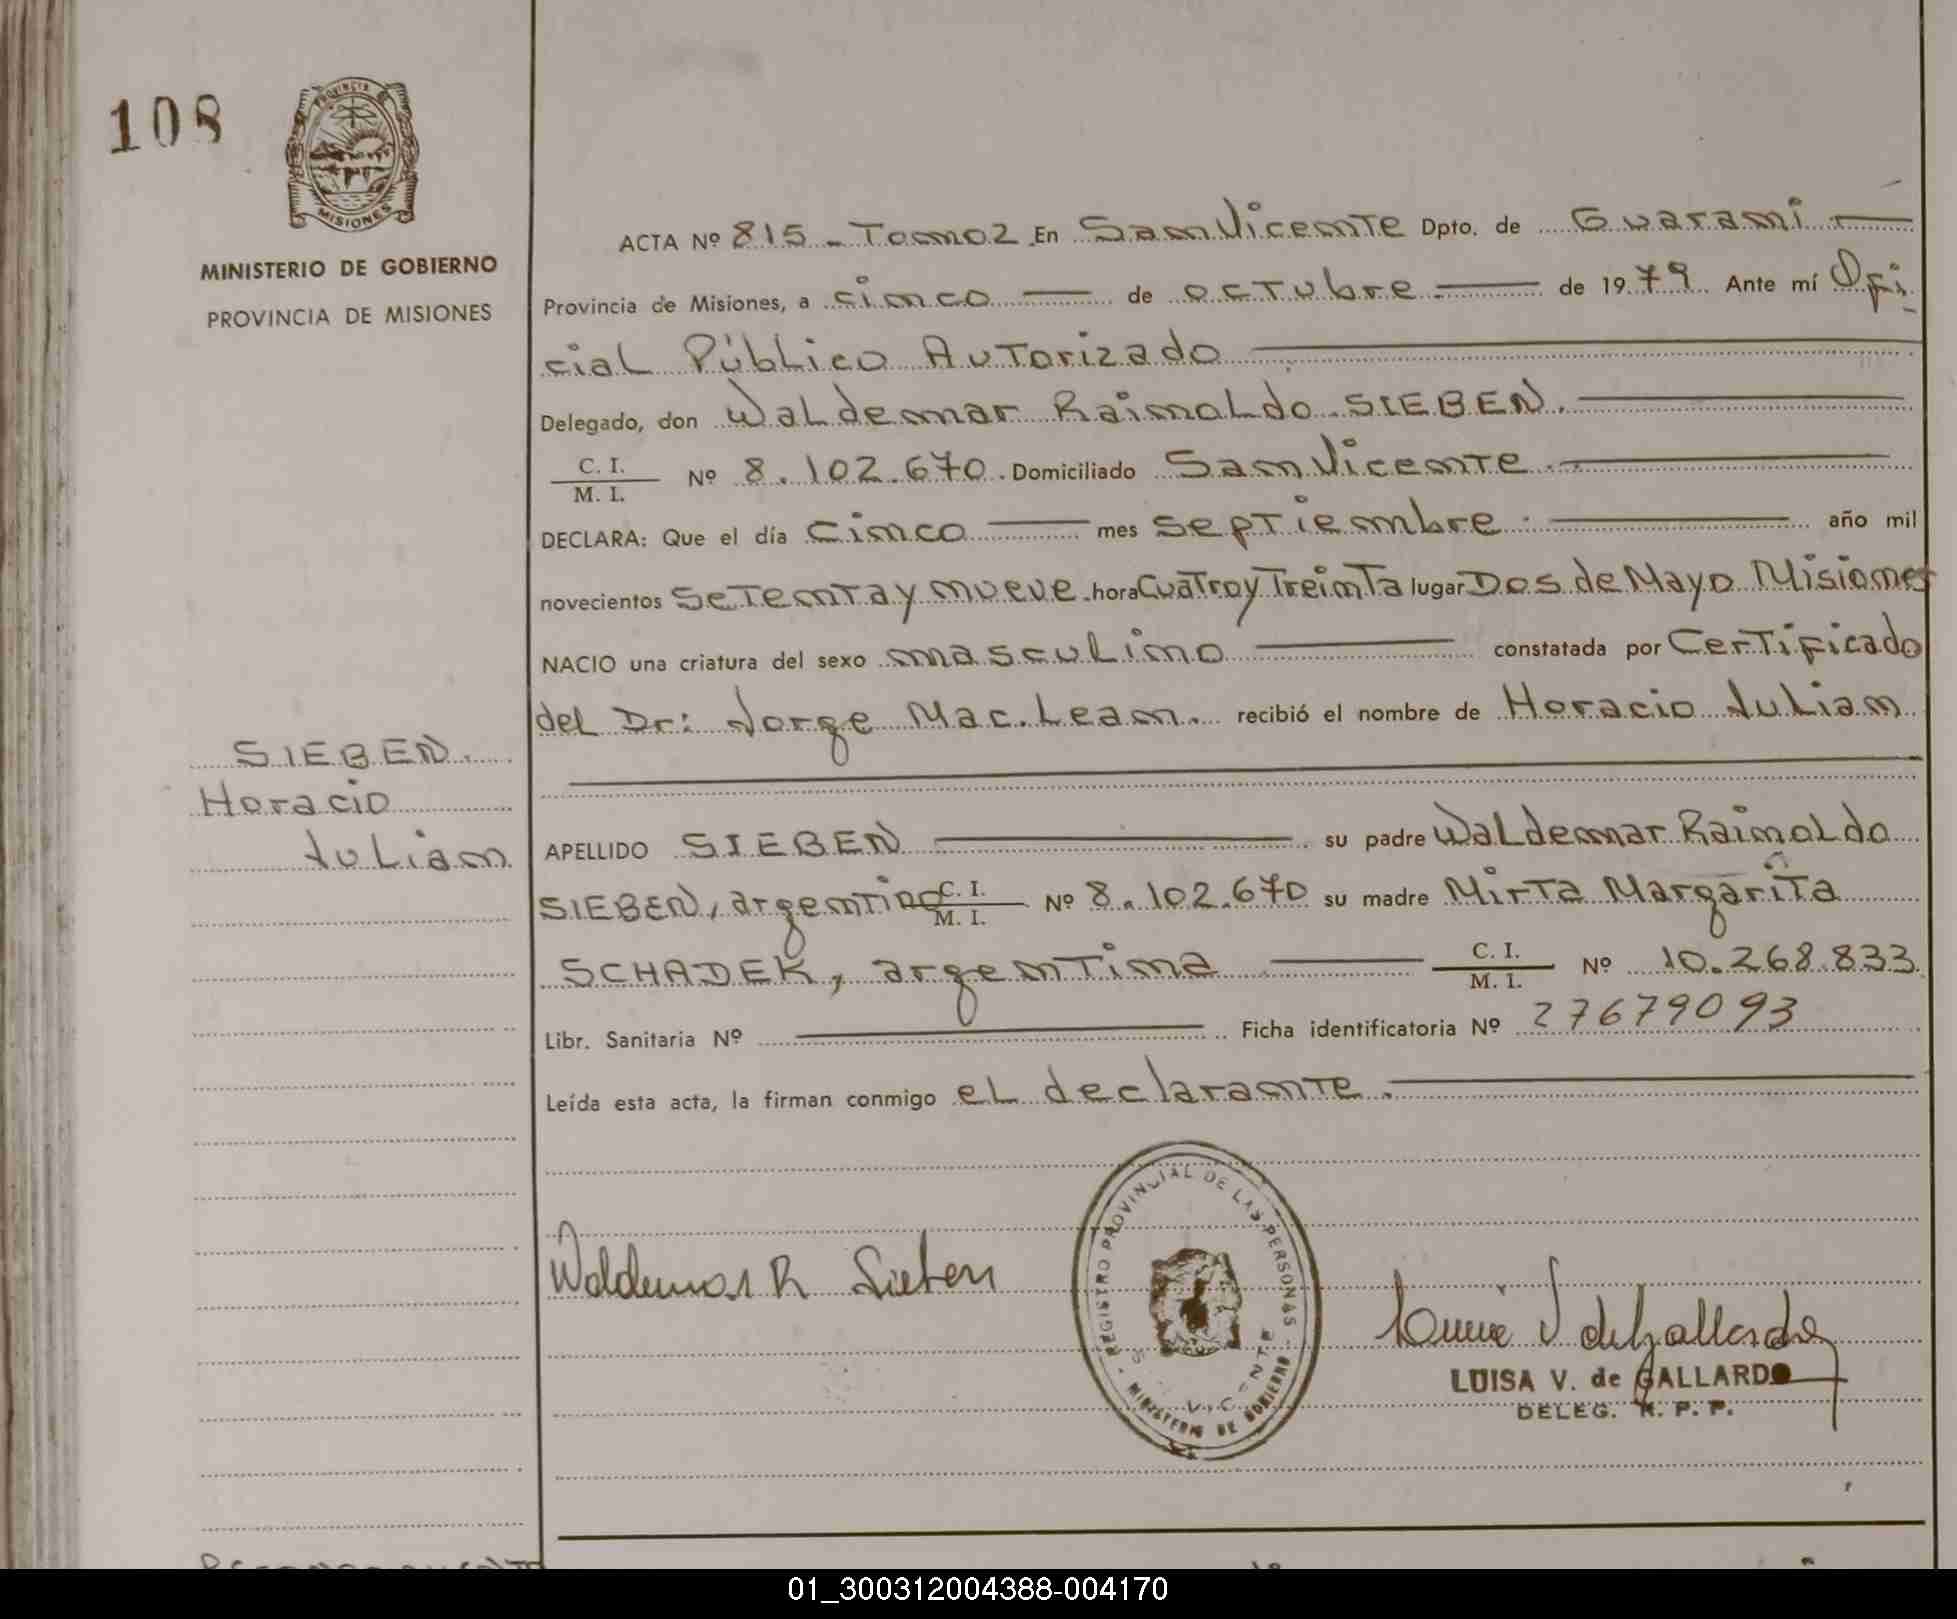 108
PROVINCIA DE
MISIONES
MINISTERIO DE GOBIERNO
PROVINCIA DE MISIONES
SIEBEN.
Horacio
Julian
ACTA Nº 815 - Tomo 2 En San Vicente Dpto. de Guarani
Provincia de Misiones, a cinco de octubre de 1979 Ante mí Ofi
cial Público Autorizado
Delegado, don Waldemar Rainoldo SIEBEN.
C. I.
M. I. Nº 8.102.670. Domiciliado San Vicente
DECLARA: Que el día cinco mes septiembre año mil
novecientos setenta y nueve. hora Cuatro y Treinta lugar Dos de Mayo Misiones
NACIO una criatura del sexo masculino constatada por Certificado
del Dr: Jorge Mac. Lean. recibió el nombre de Horacio Julian
APELLIDO SIEBEN su padre Waldemar Rainoldo
SIEBEN, argentino C. I. M. I. Nº 8.102.670 su madre Mirta Margarita
SCHADEK, argentina C. I. M. I. Nº 10.268.833
Libr. Sanitaria Nº Ficha identificatoria Nº 27679093
Leída esta acta, la firman conmigo el declarante.
Waldemar R Sieben
REGISTRO PROVINCIAL DE LAS PERSONAS
S. VICENTE
MINISTERIO DE GOBIERNO
Luisa V de Gallardo
LUISA V. de GALLARDO
DELEG. R. P. P.
01_300312004388-004170